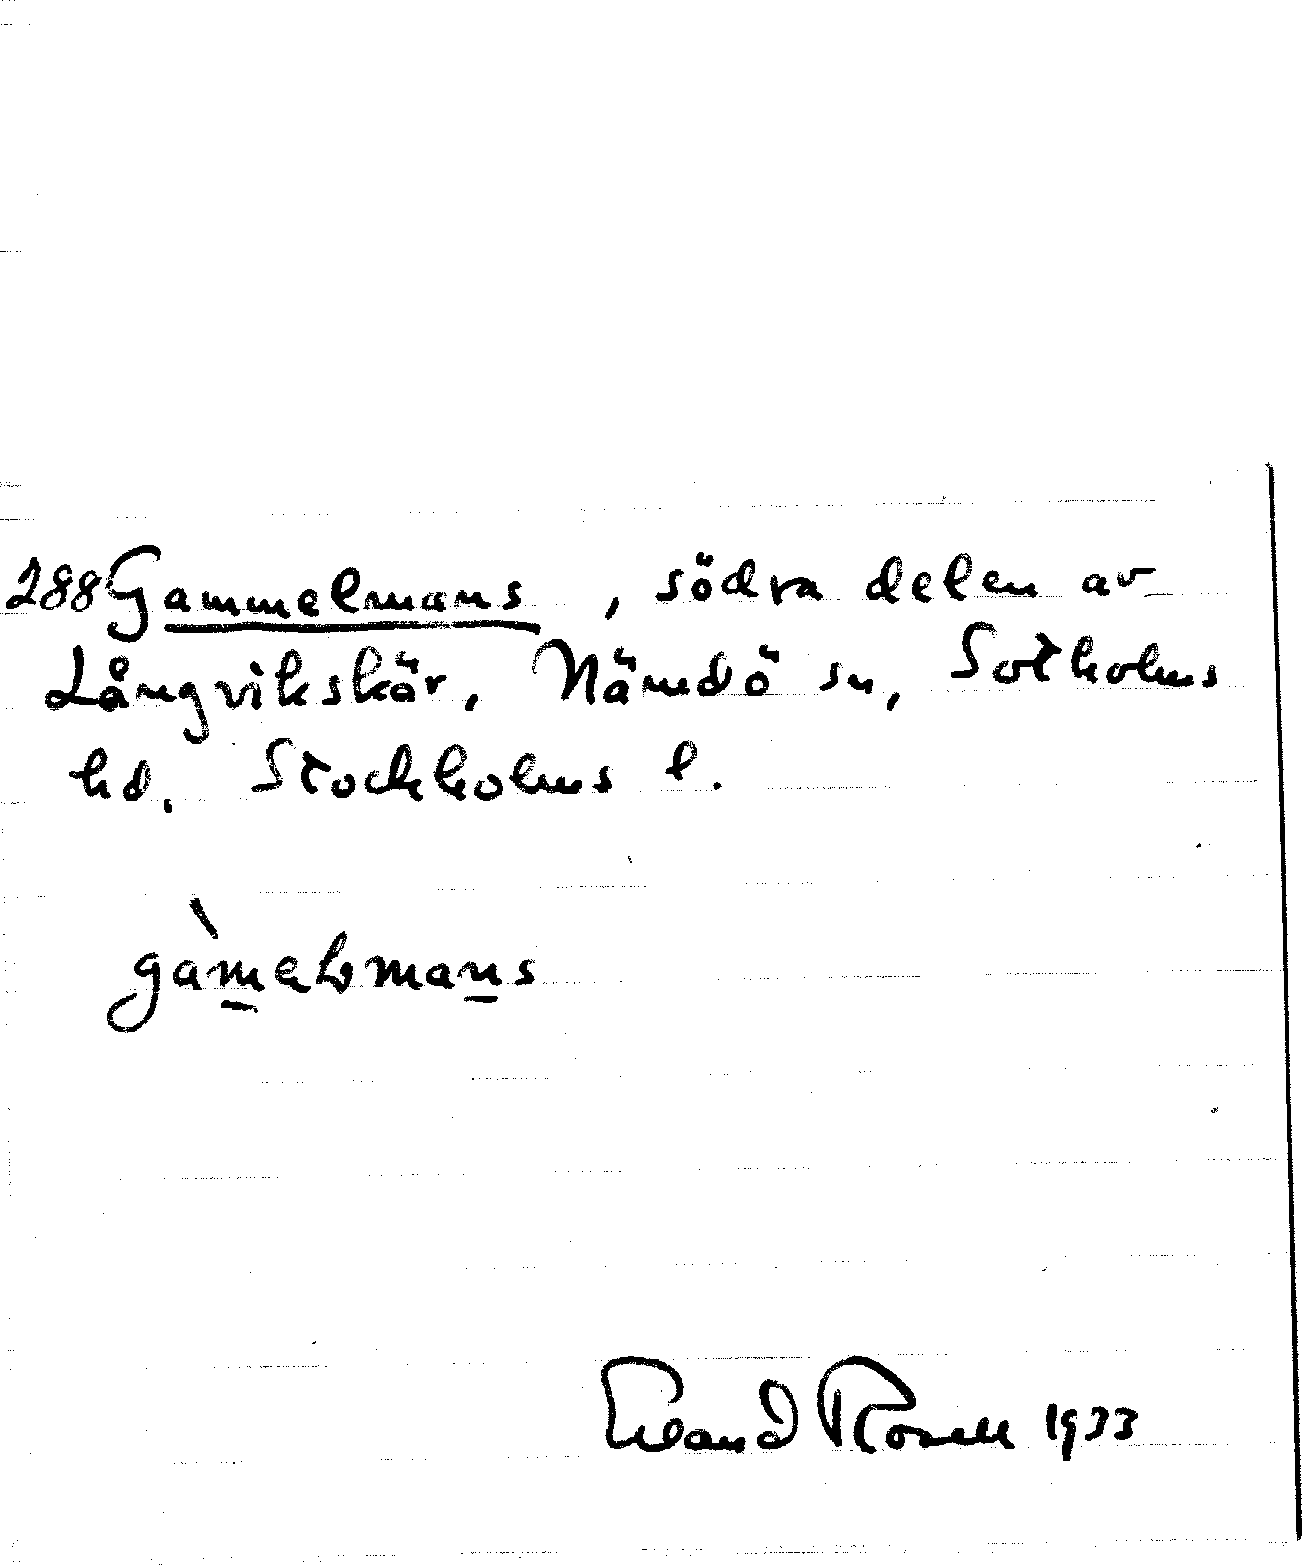 288 Gammelmans, södra delen av
Långvikskär, Nämdö sn, Sotholms
hd. Stockholms l.
gàmelsmans
Erland Rosell 1933